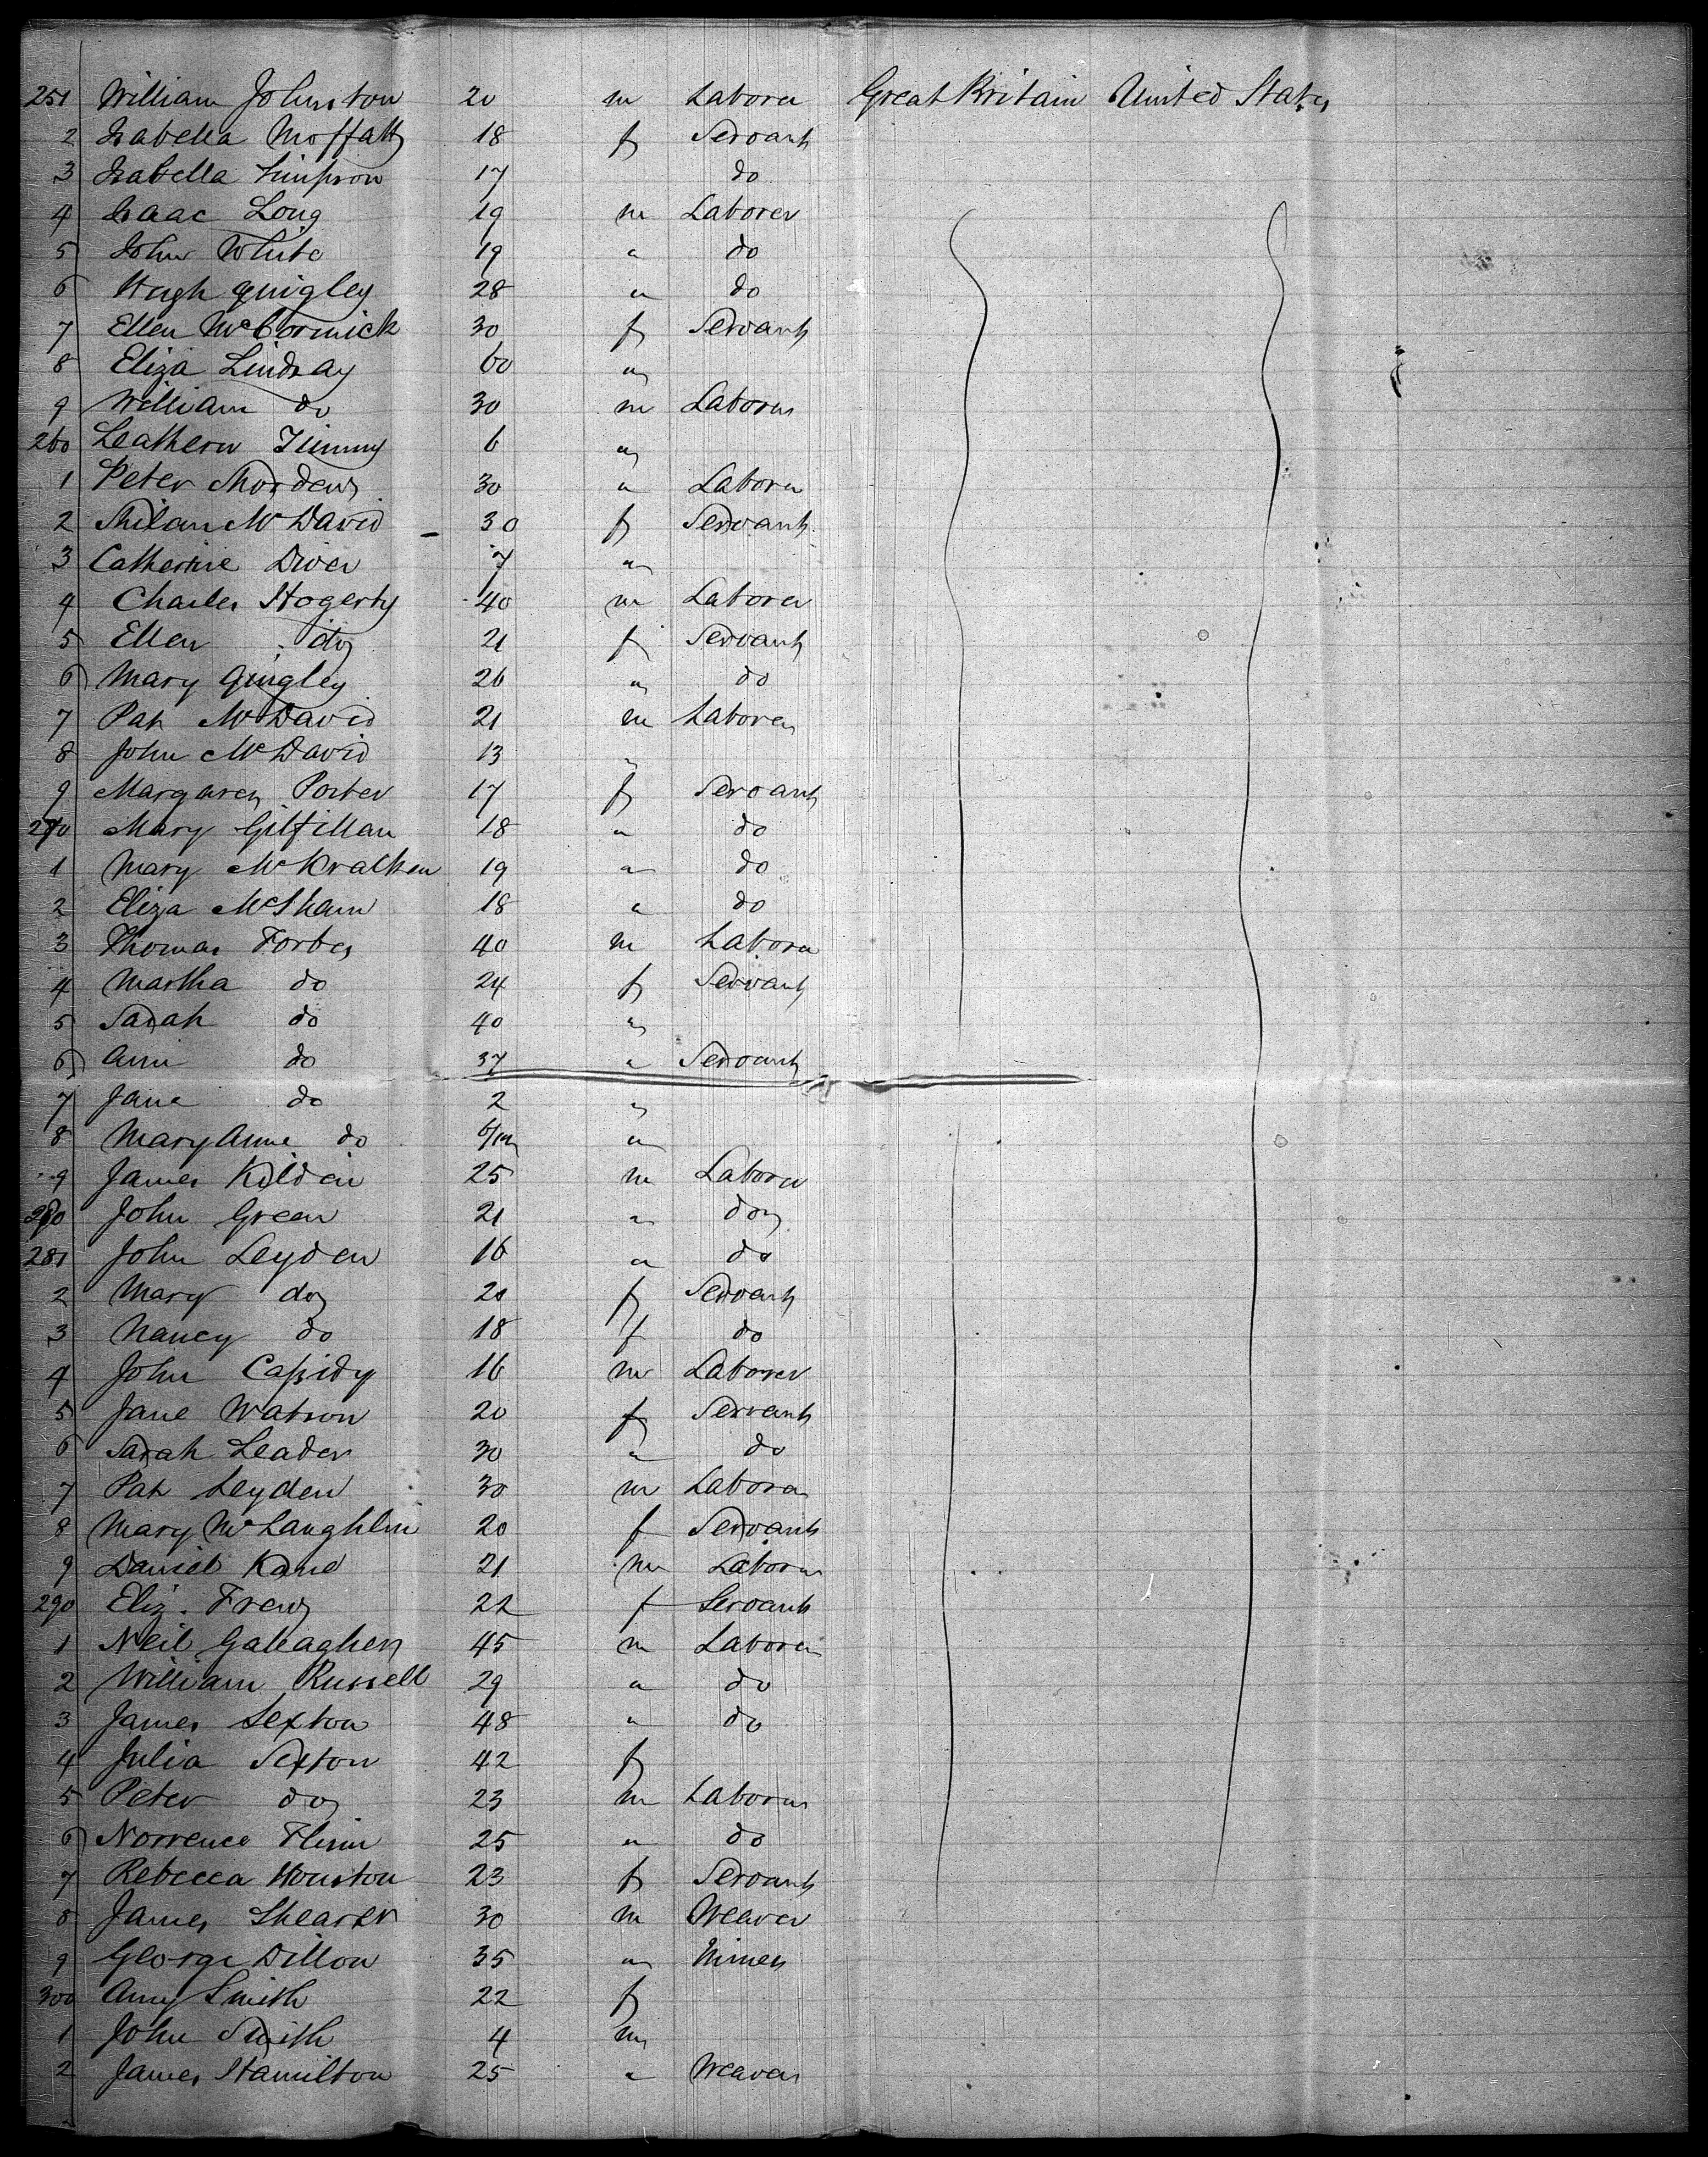 251 William Johnston 20 m Laborer Great Britain United States
2 Isabella Moffatt 18 f Servant
3 Isabella Simpson 17 do
4 Isaac Long 19 m Laborer
5 John White 19 " do
6 Hugh Quigley 28 " do
7 Ellen McCormick 30 f Servant
8 Eliza Lindsay 60 "
9 William do 30 m Laborer
260 Leathern Jimmy 6 "
1 Peter 30 " Laborer
2 McDavid 30 f Servant
3 Catherine Diver 7 "
4 Charles Hogerty 40 m Laborer
5 Ellen do 21 f Servant
6 Mary Quigley 26 " do
7 Pat McDavid 21 m Laborer
8 John McDavid 13 "
9 Margaret Porter 17 f Servant
270 Mary Gilfillan 18 " do
1 Mary McKracken 19 " do
2 Eliza McSham 18 " do
3 Thomas Forbes 40 m Laborer
4 Martha do 24 f Servant
5 Sarah do 40 "
6 Ann do 37 " Servant
7 Jane do 2 "
8 Mary Anne do 6/m "
9 James Kildein 25 m Laborer
280 John Green 21 " do
281 John Leyden 16 " do
2 Mary do 20 f Servant
3 Nancy do 18 f do
4 John Cassidy 16 m Laborer
5 Jane Watson 20 f Servant
6 Sarah Leader 30 " do
7 Pat Leyden 30 m Laborer
8 Mary McLaughlin 20 f Servant
9 Daniel Kane 21 m Laborer
290 Eliz. Frew 22 f Servant
1 Neil Galeagher 45 m Laborer
2 William Russell 29 " do
3 James Sexton 48 " do
4 Julia Sexton 42 f
5 Peter do 23 m Laborer
6 Norrence Flinn 25 " do
7 Rebecca Houston 23 f Servant
8 James Shearer 30 m Weaver
9 George Dillon 35 " Miner
300 Amy Smith 22 f
1 John Smith 4 m
2 James Hamilton 25 " Weaver